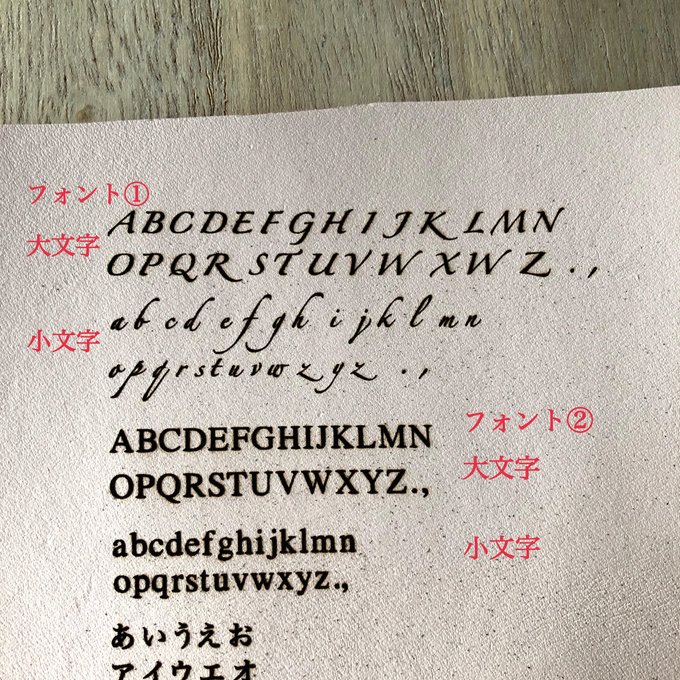 フォント①
大文字
ABCDEFGHIJKLMN
OPQRSTUVWXWZ.,
小文字
abcdefghijklmn
opqrstuvwzyz.,
フォント②
大文字
ABCDEFGHIJKLMN
OPQRSTUVWXYZ.,
小文字
abcdefghijklmn
opqrstuvwxyz.,
あいうえお
アイウエオ